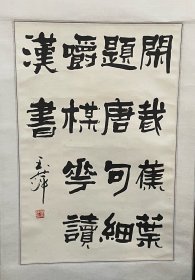 閑裁蕉葉
題唐句細
嚼楳花讀
漢書